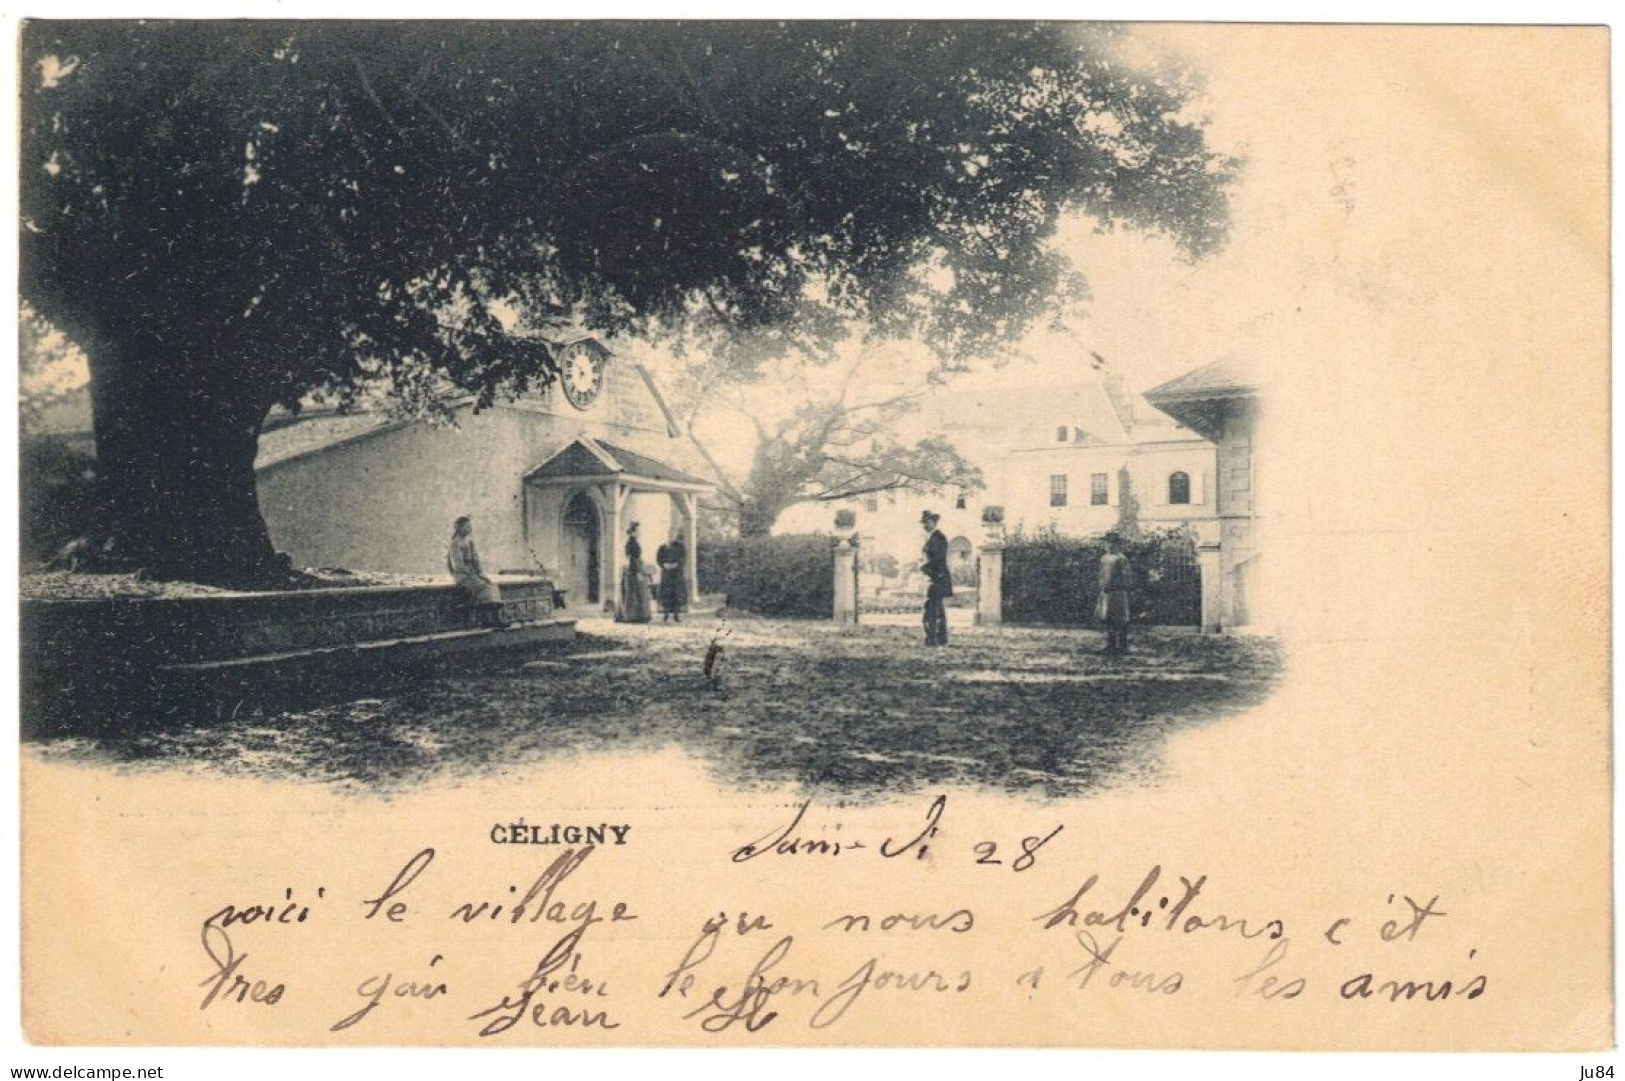 CÉLIGNY
Sam-Di 28
voici le village ou nous habitons c'èt
tres gai bien le bonjours a tous les amis
Jean H
delcampe.net
Ju84